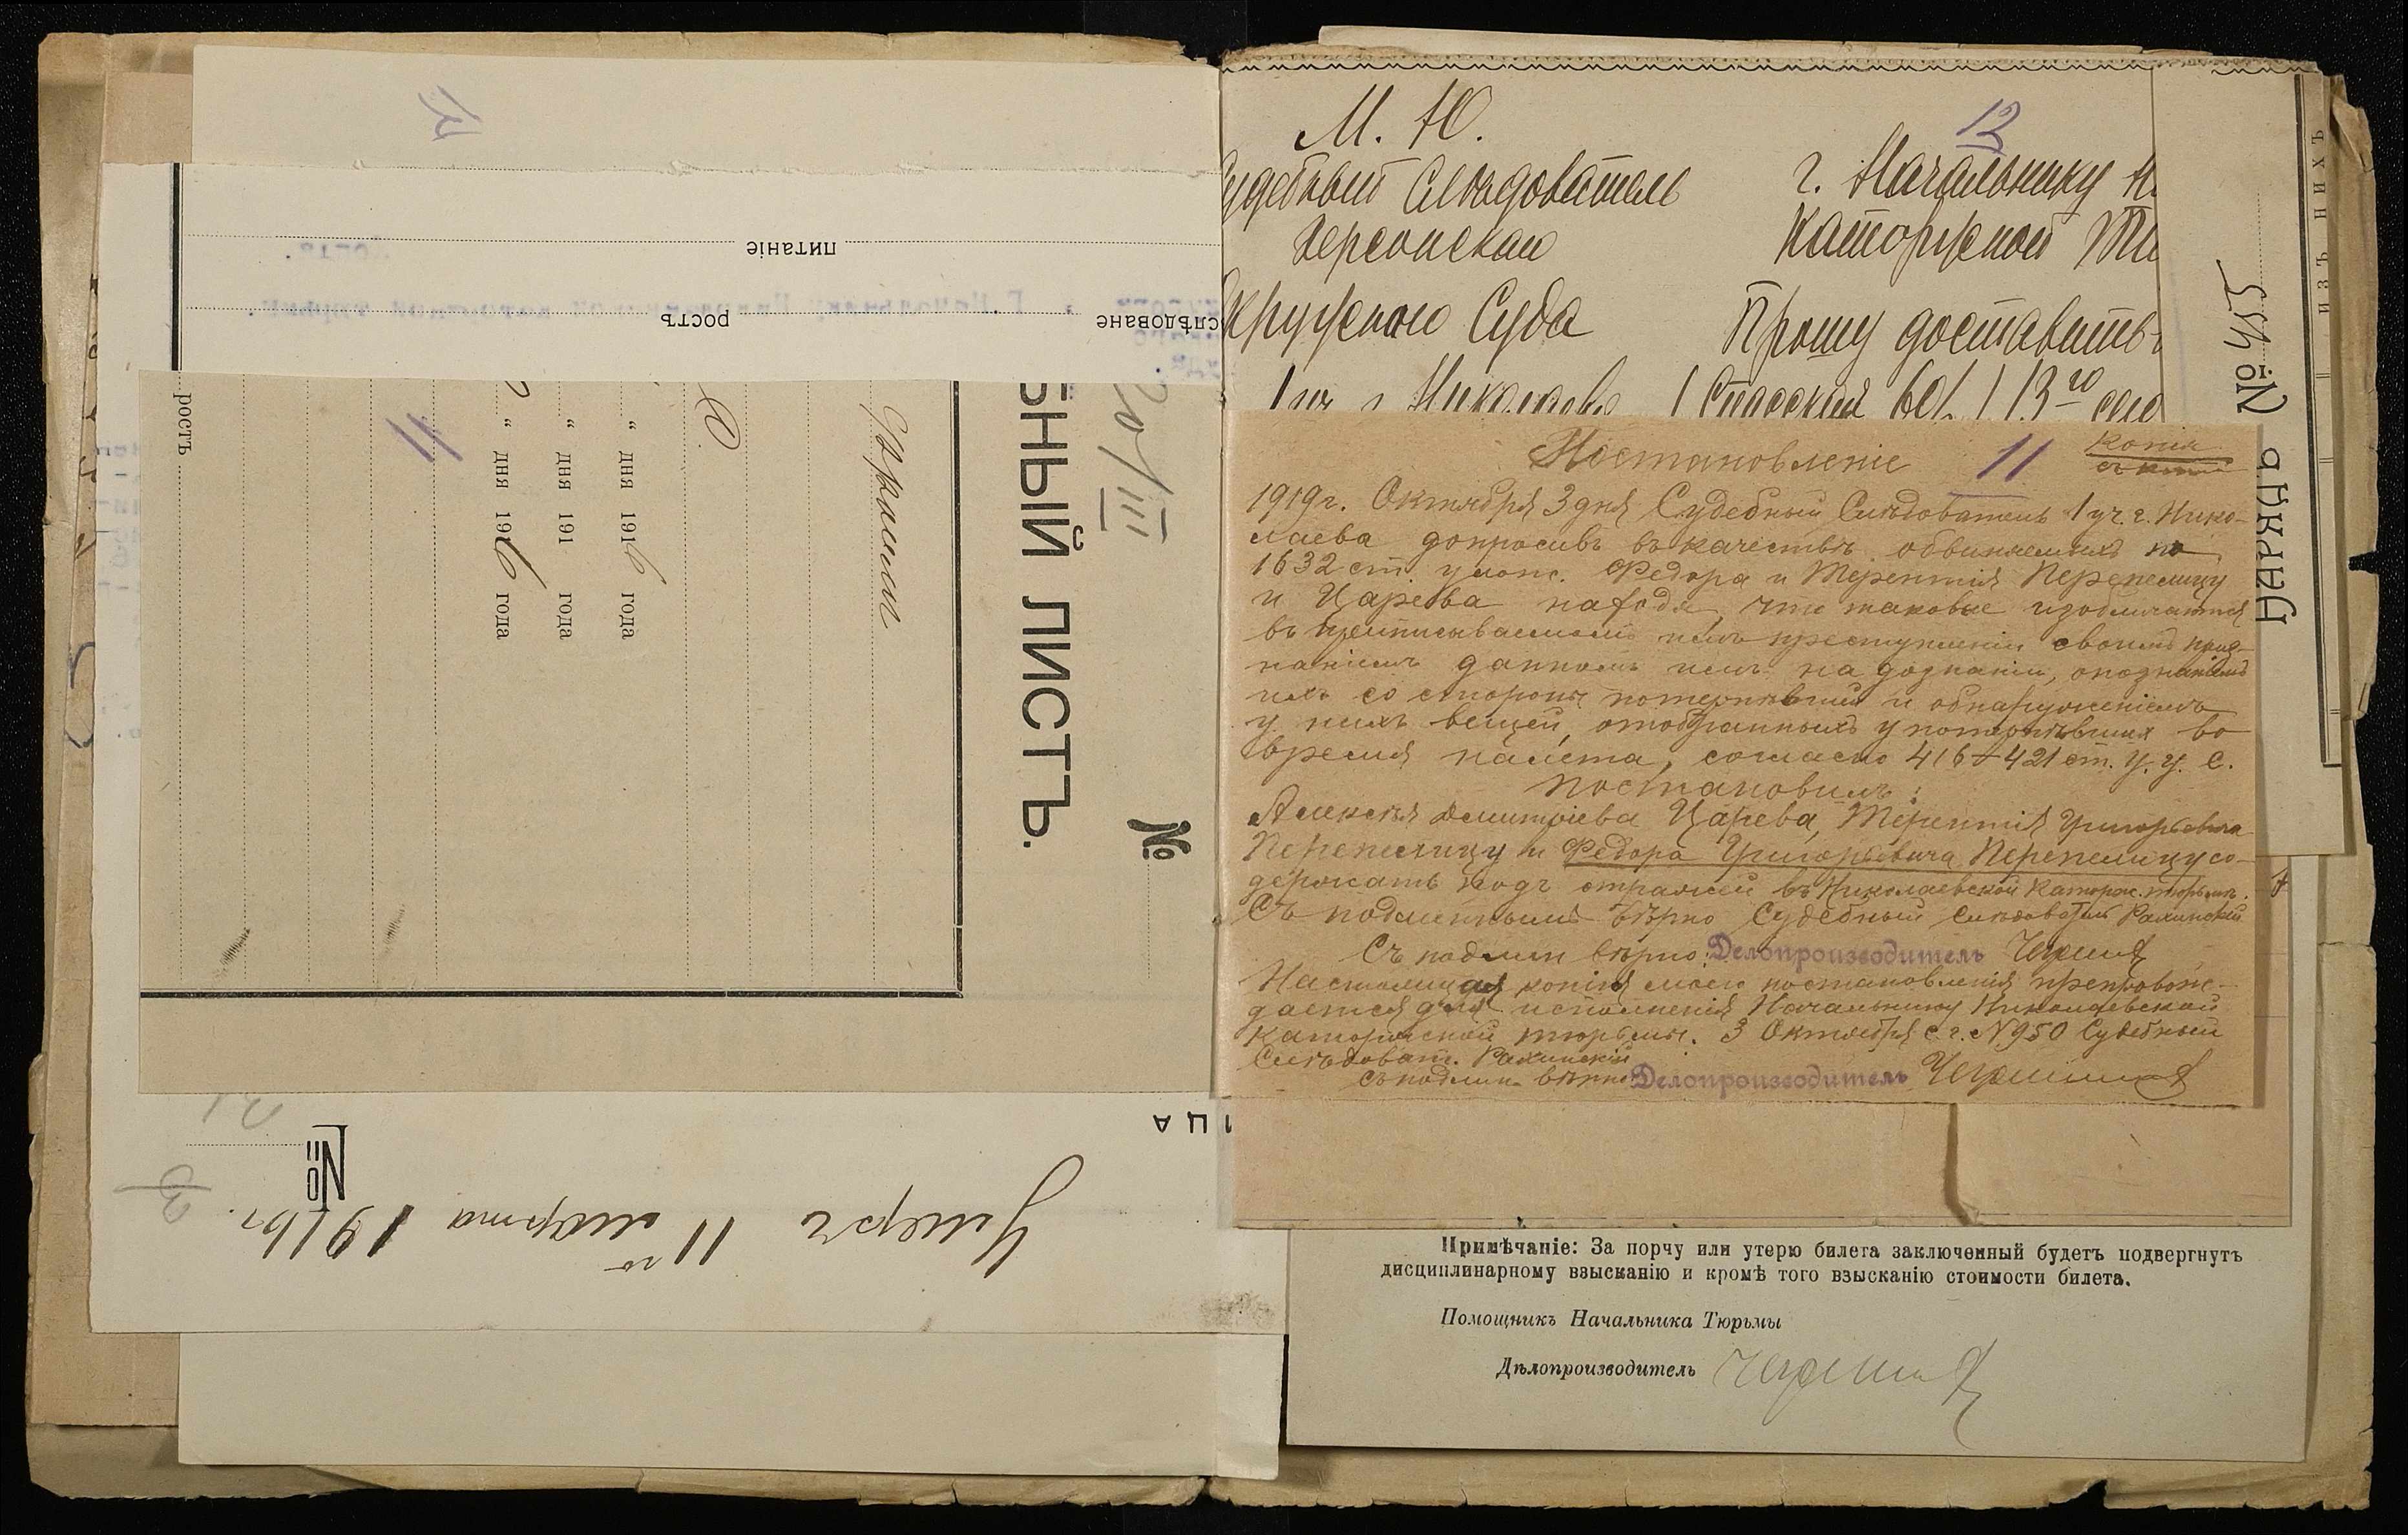 питаніе
ростъ
слѣдоване
ростъ
11
" дня 1916 года
" дня 191 года
" дня 1916 года
БНЫЙ ЛИСТЪ.
20/III
№
ИЦА
№
Умеръ 11го марта 1916г.
М. Ю.
Судебный Слѣдователь
Херсонскаго
Окружнаго Суда
1 уч. г. Николаева
12
г. Начальнику Н.
Каторжной Тю
Прошу доставить
(Спасская 60/
ИЗЪ НИХЪ
№ 455
УАРККА
Постановленіе
11
Копія
1919 г. Октября 3 дня Судебный Слѣдователь 1 уч. г. Нико-
лаева допросивъ въ качествѣ обвиняемыхъ по
1632 ст. улож. Федора и Терентія Перепелицу
и Царева находя, что таковые изобличаются
въ приписываемомъ имъ преступленіи своимъ приз-
наніемъ даннымъ имъ на дознаніи, опознаніемъ
ихъ со стороны потерпѣвшихъ и обнаруженіемъ
у нихъ вещей, отобранныхъ у потерпѣвшихъ во
время налета, согласно 416-421 ст. У. У. С.
постановилъ:
Алексѣя Дмитріева Царева, Терентія Григорьевича
Перепелицу и Федора Григорьевича Перепелицу со-
держать подъ стражей въ Николаевской Каторж. тюрьмѣ.
Съ подлиннымъ вѣрно Судебный Слѣдователь
Съ подлин вѣрно: Делопроизводитель
Настоящая копія моего постановленія препровож-
дается для исполненія Начальнику Николаевской
Каторжной тюрьмы. 3 Октября с. г. № 950 Судебный
Слѣдоват.
съ подлин. вѣрно Делопроизводитель
Примѣчаніе: За порчу или утерю билета заключенный будетъ подвергнутъ
дисциплинарному взысканію и кромѣ того взысканію стоимости билета.
Помощникъ Начальника Тюрьмы
Дѣлопроизводитель